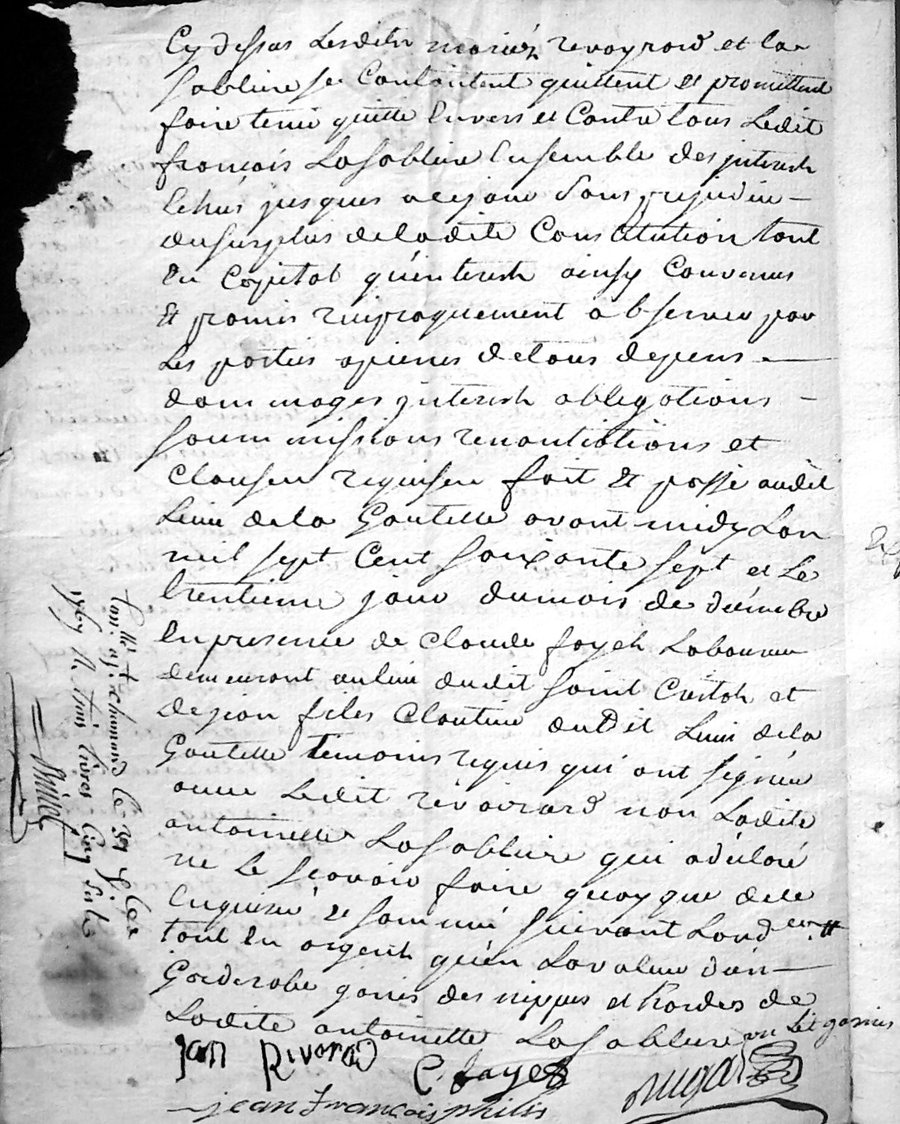 Cy dessus Lesdits mariéz revoyrard et la
sabliere se Contentent quittent et promettent
faire tenir quitte Envers et Contre tous Ledit
françois Lasabliere Ensemble des jnterests
Echus jusques a ce jour sans prejudice
du surplus de ladite Constitution tant
En Capital qu'interests ainsy Convenus
Et promis reciproquement observer par
Les parties a peines de tous depens
dommages jnterests obligations
soummissions renontiations et
Clauses requises fait et passé audit
Lieu de la Goutelle avant midy Lan
mil sept Cent soixante sept et Le
trentieme jour du mois de décembre
En presence de Claude fayet Laboureur
demeurant au lieu dudit saint et
de jean Cloutier dudit Lieu de la
Goutelle temoins requis qui ont signées
avec Ledit révoirard non Ladite
antoinette Lasabliere qui a déclaré
ne le sçavoir faire quoyque de ce
Enquise et sommée suivant Lord
tant En argent qu'En La valeur d'un
Garderobe garnis des nippes et hardes de
Ladite antoinette Lasabliere un Lit garnis
jan Rivorad
C fayet
jean francois philis
Cllé et
le 31 Xbre
1767 R trois livres Cinq sols